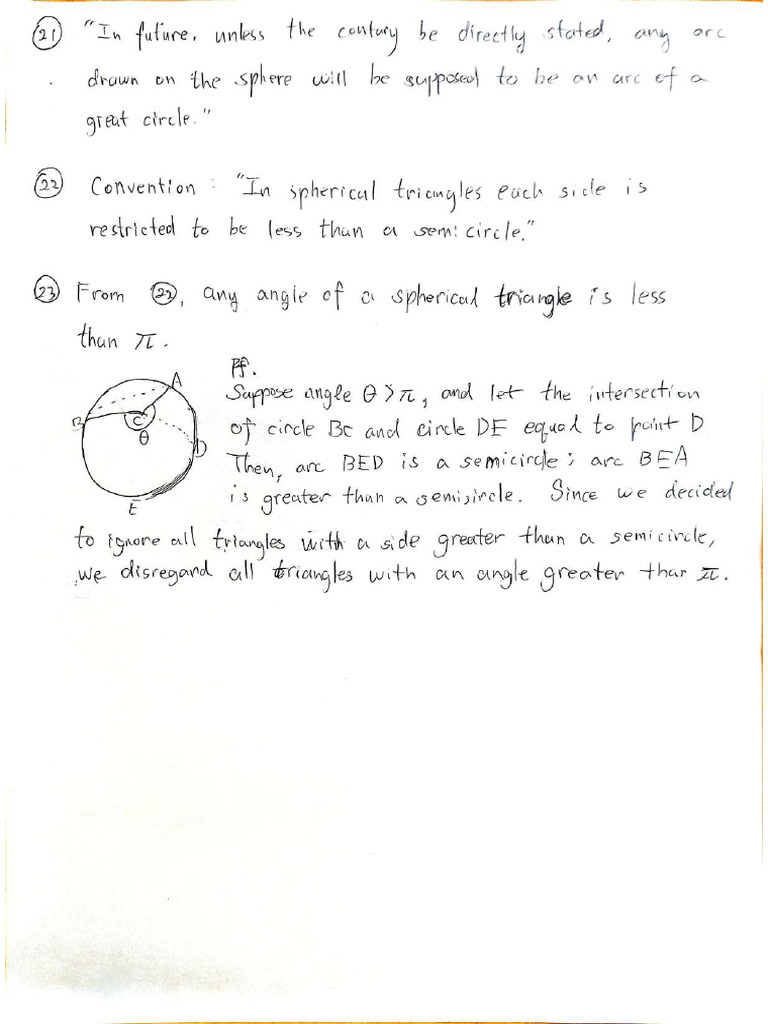 (21) "In future, unless the contary be directly stated, any arc
drawn on the sphere will be supposed to be an arc of a
great circle."
(22) Convention : "In spherical triangles each side is
restricted to be less than a semicircle."
(23) From (22), any angle of a spherical triangle is less
than π.
Pf.
Suppose angle θ > π, and let the intersection
of circle BC and circle DE equal to point D
Then, arc BED is a semicircle; arc BEA
is greater than a semicircle. Since we decided
to ignore all triangles with a side greater than a semicircle,
we disregard all triangles with an angle greater than π.
A
B
C
θ
D
E